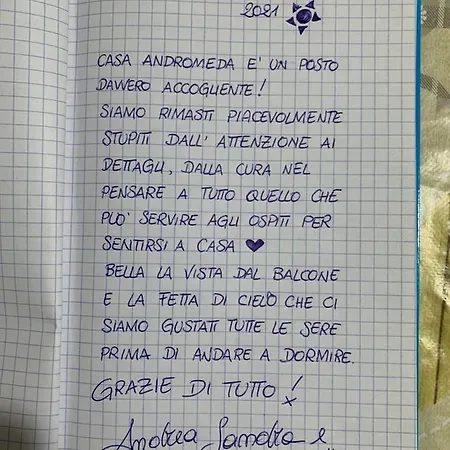 2021
CASA ANDROMEDA E' UN POSTO
DAVVERO ACCOGLIENTE!
SIAMO RIMASTI PIACEVOLMENTE
STUPITI DALL' ATTENZIONE AI
DETTAGLI, DALLA CURA NEL
PENSARE A TUTTO QUELLO CHE
PUO' SERVIRE AGLI OSPITI PER
SENTIRSI A CASA ♥
BELLA LA VISTA DAL BALCONE
E LA FETTA DI CIELO CHE CI
SIAMO GUSTATI TUTTE LE SERE
PRIMA DI ANDARE A DORMIRE.
GRAZIE DI TUTTO!
Andrea Sandra e